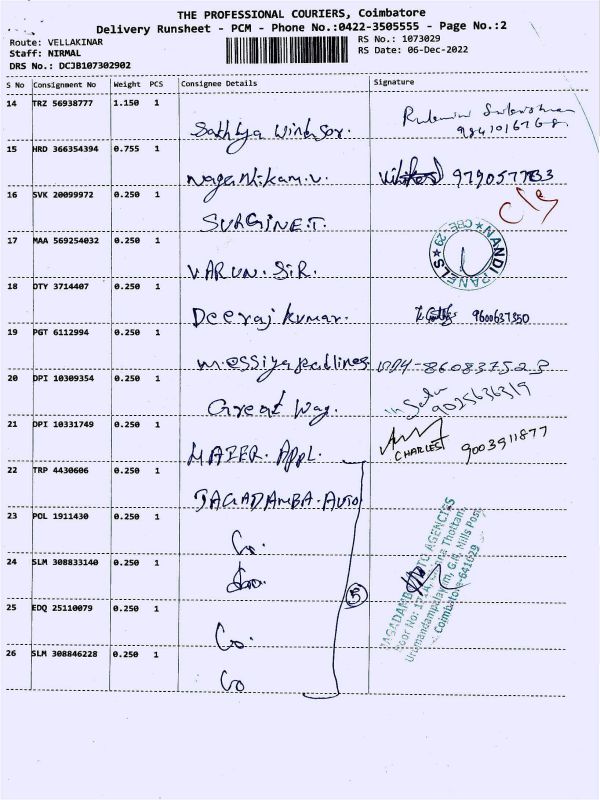 THE PROFESSIONAL COURIERS, Coimbatore
Delivery Runsheet - PCM - Phone No.:0422-3505555 - Page No.:2
Route: VELLAKINAR
RS No.: 1073029
Staff: NIRMAL
RS Date: 06-Dec-2022
DRS No.: DCJB107302902
S No Consignment No Weight PCS Consignee Details Signature
14 TRZ 56938777 1.150 1
Sathya Windsor.
9841016768
15 HRD 366354394 0.755 1
16 SVK 20099972 0.250 1
SURGINET.
17 MAA 569254032 0.250 1
VARUN. SIR.
NANDI PANELS CBE-29
18 DTY 3714407 0.250 1
Deeraj kumar. 9600637350
19 PGT 6112994 0.250 1
20 DPI 10309354 0.250 1
Great Way. 9025636319
21 DPI 10331749 0.250 1
MAZER. Appl. CHARLES 9003911877
22 TRP 4430606 0.250 1
JAGADAMBA. AUTO
23 POL 1911430 0.250 1
24 SLM 308833140 0.250 1
25 EDQ 25110079 0.250 1
5
26 SLM 308846228 0.250 1
JAGADAMBA AUTO AGENCIES
Thottam,
Urumandampalayam, G.N. Mills Post,
Coimbatore-641029